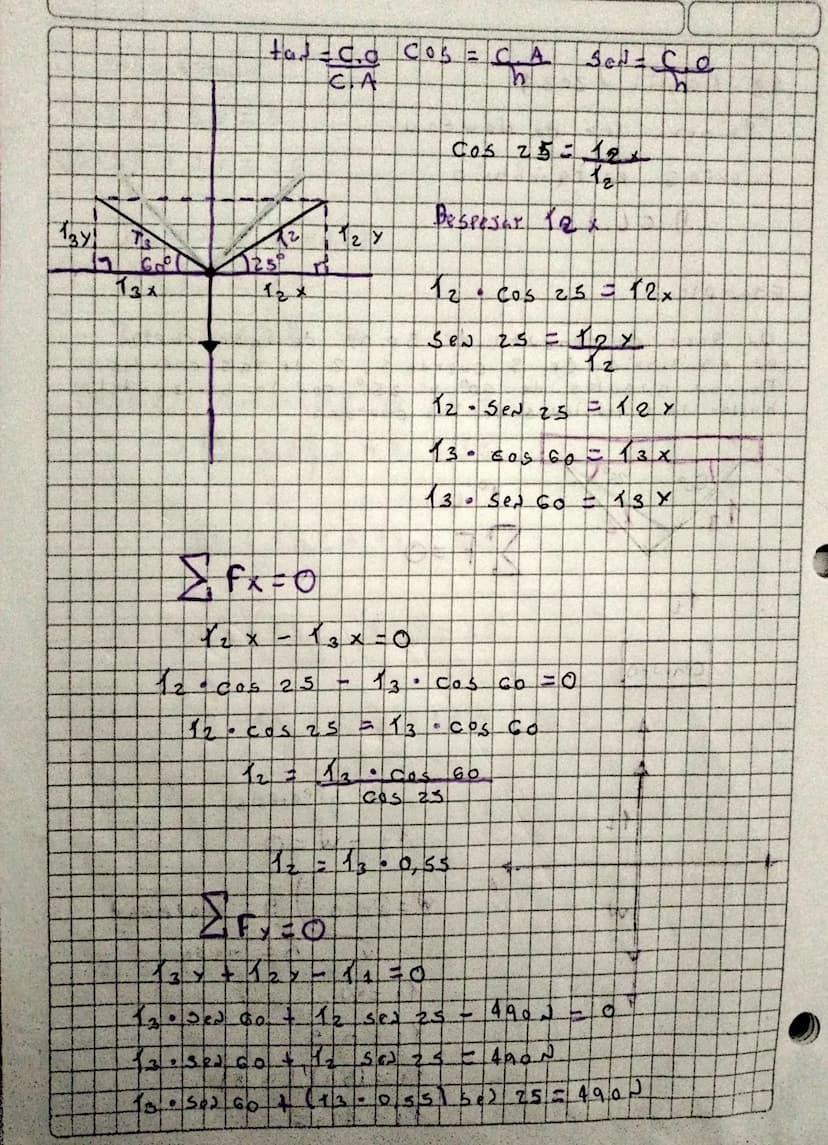 tan = C.O / C.A   Cos = C.A / h   Sen = C.O / h
Cos 25 = T2x / T2
T2x
T3y T3 60° T2 25° T2y
T3x T2x
T2 · cos 25 = T2x
Sen 25 = T2y / T2
T2 · sen 25 = T2y
T3 · cos 60 = T3x
T3 · sen 60 = T3y
∑ Fx = 0
T2x - T3x = 0
T2 · cos 25 - T3 · cos 60 = 0
T2 · cos 25 = T3 · cos 60
T2 = T3 · cos 60 / cos 25
T2 = T3 · 0,55
∑ Fy = 0
T3y + T2y - T1 = 0
T3 · sen 60 + T2 sen 25 - 490N = 0
T3 · sen 60 + T2 sen 25 = 490N
T3 · sen 60 + (T3 · 0,55) sen 25 = 490N